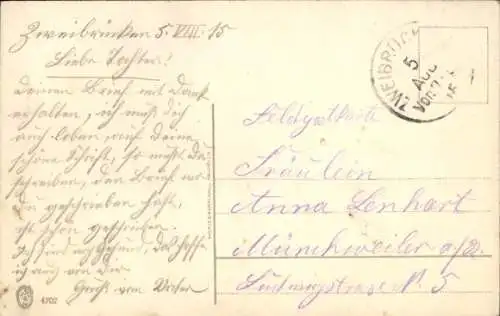 Zweibrücken 5. VIII. 15
Liebe Tochter!
Deinen Brief mit Dank
erhalten, ich muß Dich
auch loben, auf Deine
schöne Schrift, so mußt Du
schreiben, den Brief wo
Du geschrieben hast,
ist schön geschrieben.
Sind auch gesund, das hoffe
ich auch von Dir
Gruß von Vater
ZWEIBRÜCK
5
AUG
VOR
15
Feldpostkarte
Fräulein
Anna Lenhart
Münchweiler a/R
Ludwigstrasse N. 5
4702